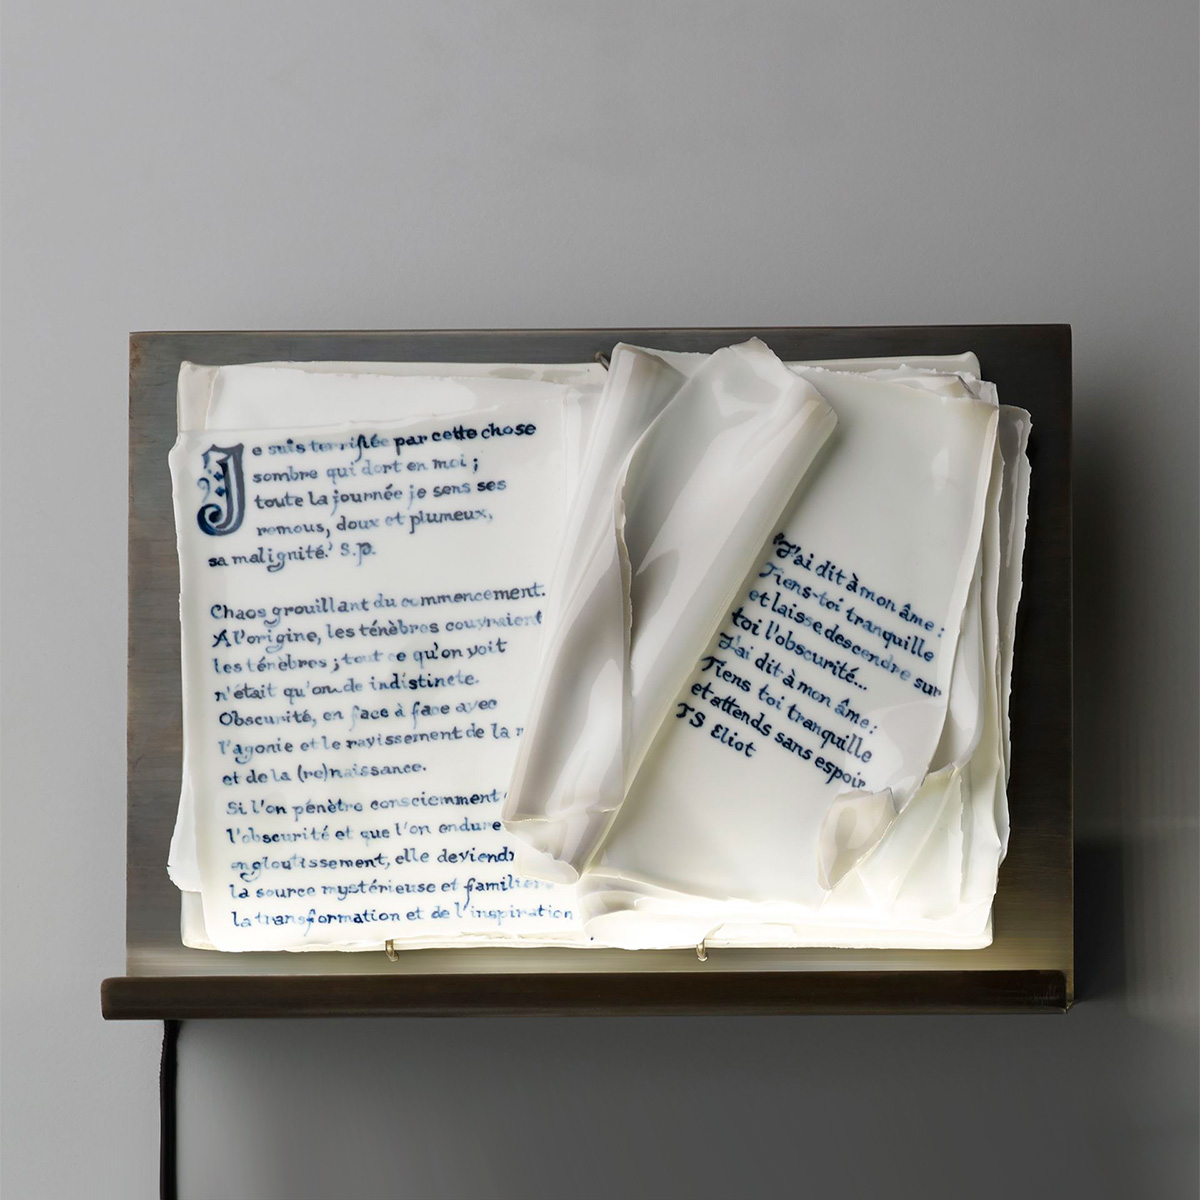 Je suis terrifiée par cette chose
sombre qui dort en moi ;
toute la journée je sens ses
remous, doux et plumeux,
sa malignité.' S.P.
Chaos grouillant du commencement.
A l'origine, les ténèbres couvraient
les ténèbres ; tout ce qu'on voit
n'était qu'onde indistincte.
Obscurité, en face à face avec
l'agonie et le ravissement de la
et de la (re)naissance.
Si l'on pénètre consciemment
l'obscurité et que l'on endure
engloutissement, elle deviendr
la source mystérieuse et familière
la transformation et de l'inspiration
"J'ai dit à mon âme :
Tiens-toi tranquille
et laisse descendre sur
toi l'obscurité...
J'ai dit à mon âme :
Tiens toi tranquille
et attends sans espoir
TS Eliot